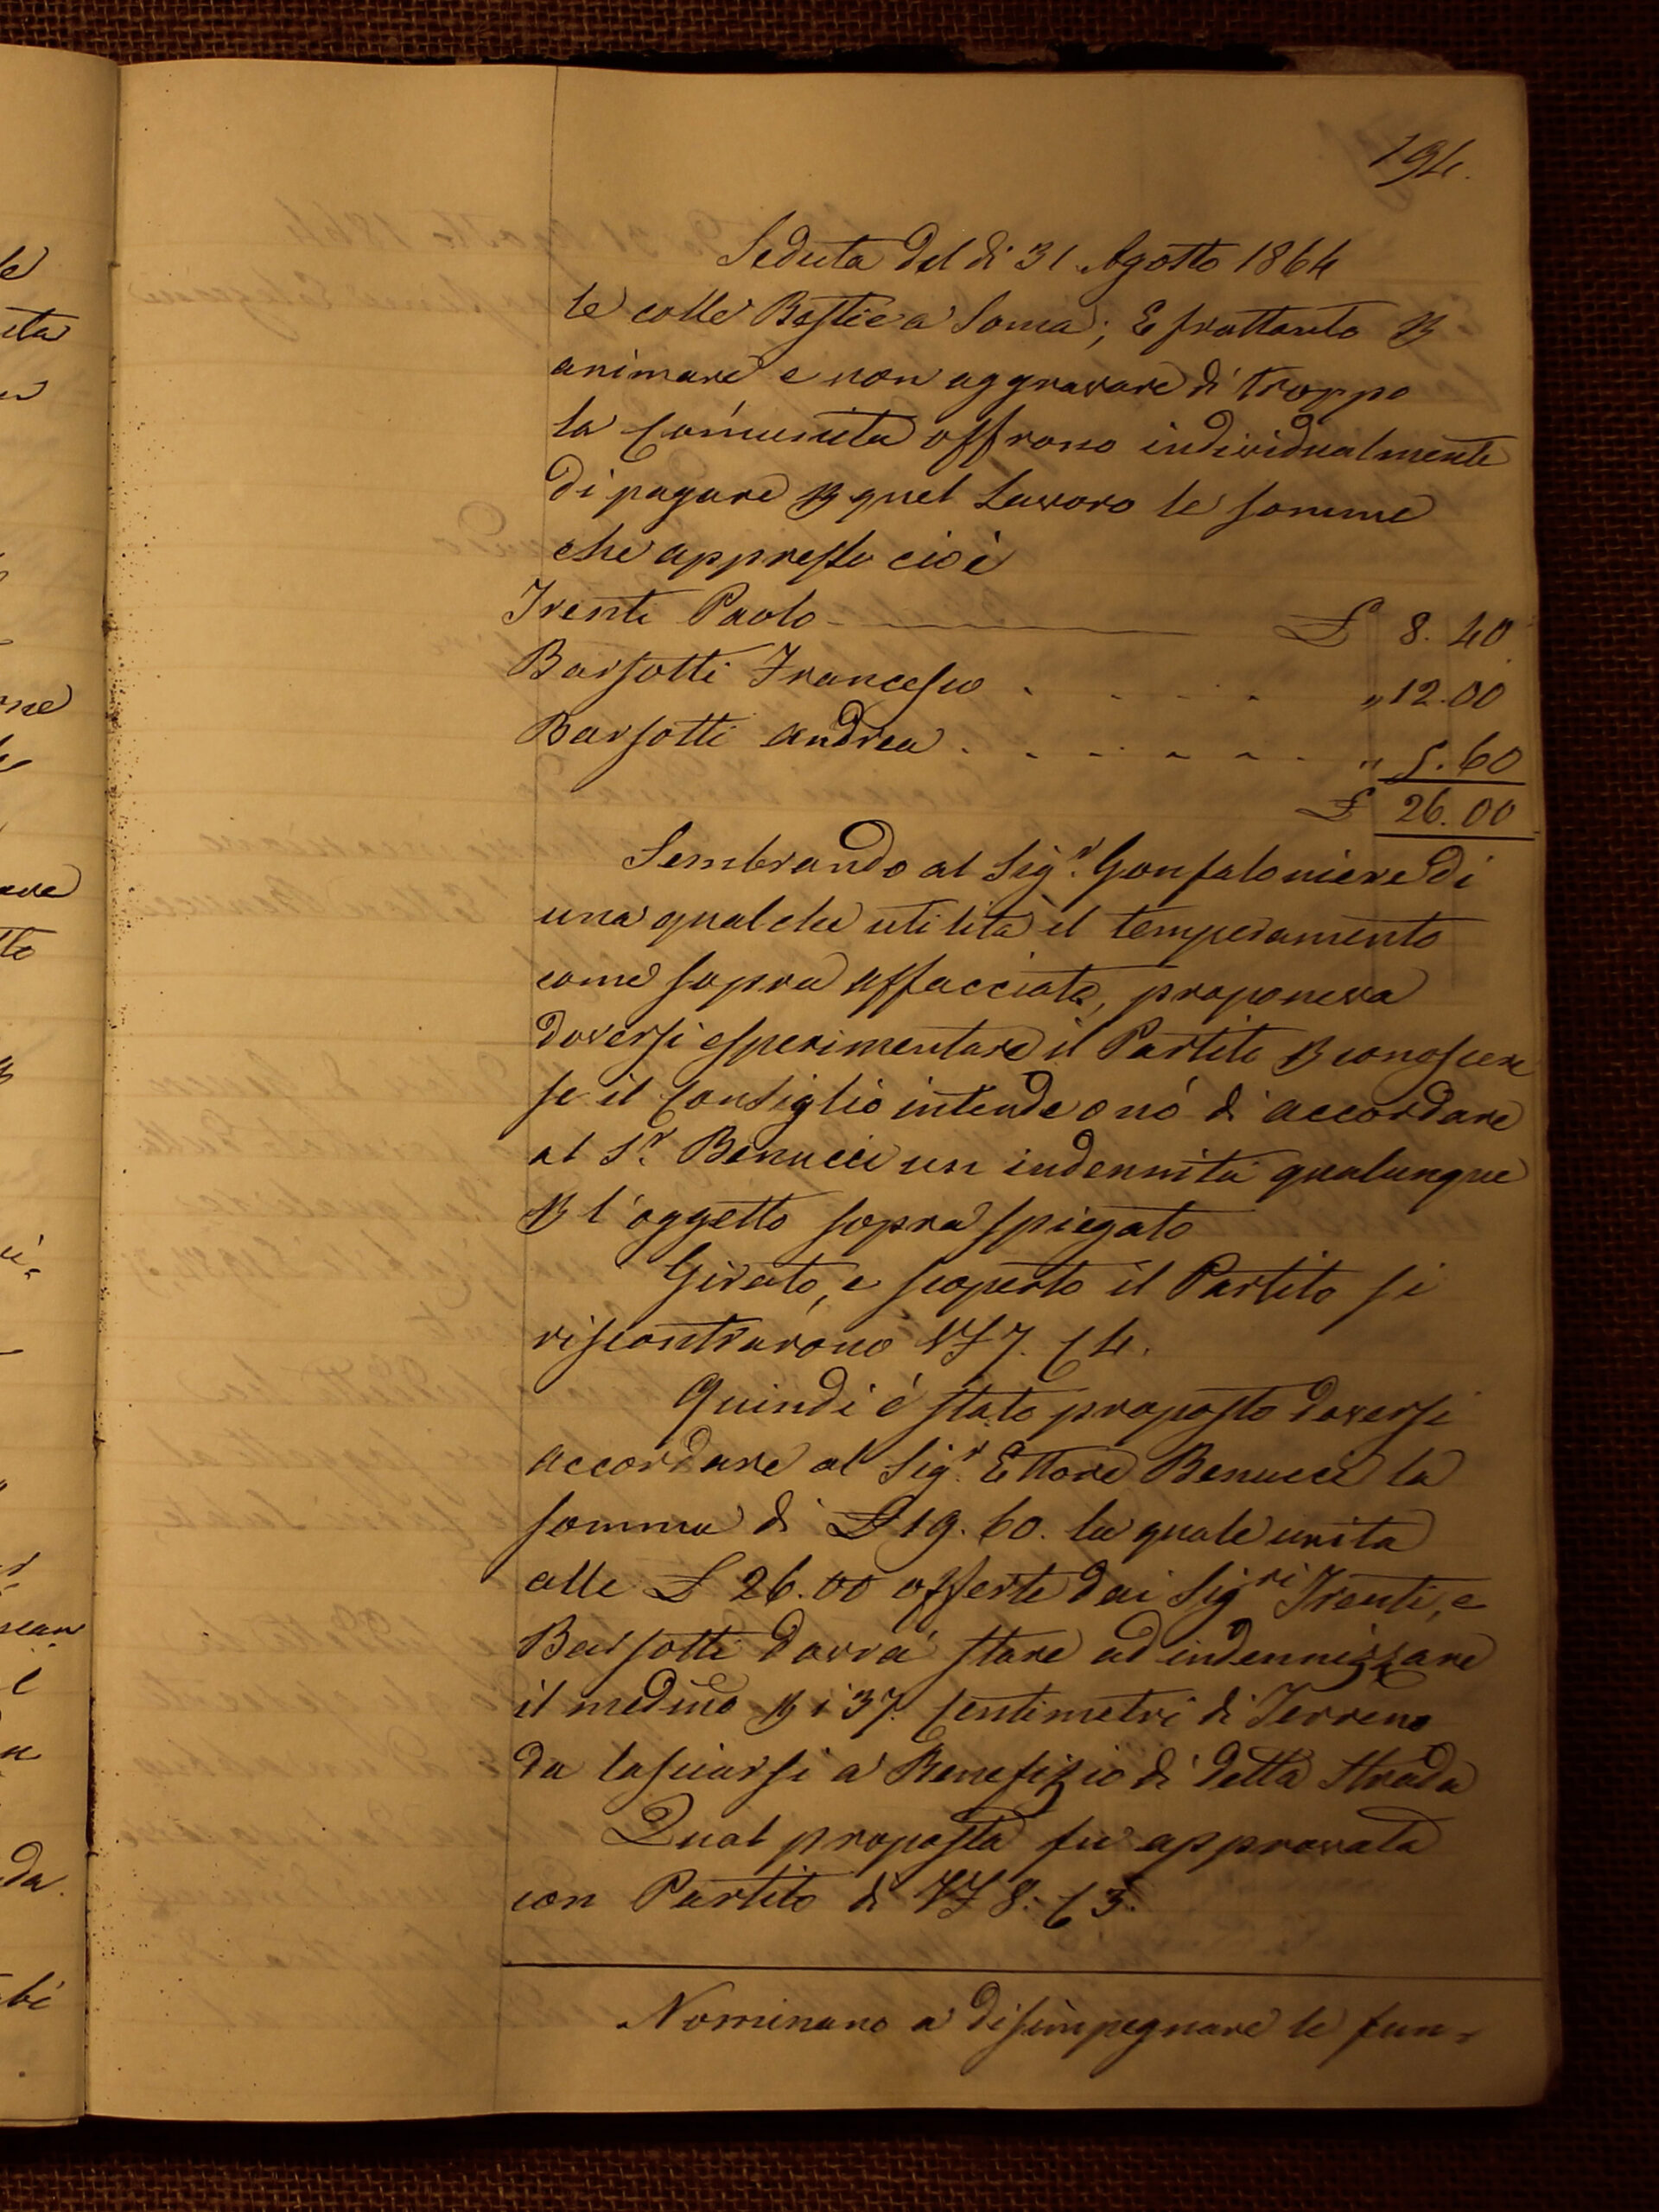 194.
Seduta del dì 31 Agosto 1864
le colle Bestie a Soma; E frattanto p
animare e non aggravare di troppo
la Comunità offrono individualmente
di pagare p quel Lavoro le somme
che appresso cioè
Trenti Paolo £ 8. 40
Barsotti Francesco . . . . . " 12.00
Barsotti Andrea . . . . . . . " 5.60
£ 26.00
Sembrando al Sigr. Gonfaloniere di
una qualche utilità il temperamento
come sopra affacciato, proponeva
doversi esperimentare il Partito p conoscere
se il Consiglio intende o nò di accordare
al Sr. Benucci un indennità qualunque
p l'oggetto sopra spiegato
Girato, e scoperto il Partito si
riscontrarono VF 7. C 4.
Quindi è stato proposto doversi
accordare al Sigr. Ettore Benucci la
somma di £ 19. 60. la quale unita
alle £ 26. 00 offerte dai Sigri Trenti, e
Barsotti dovrà stare ad indennizzare
il medmo p i 37. Centimetri di Terreno
da lasciarsi a Benefizio di detta Strada
Qual proposta fù approvata
con Partito di VF 8. C 3.
Nominano a disimpegnare le fun-